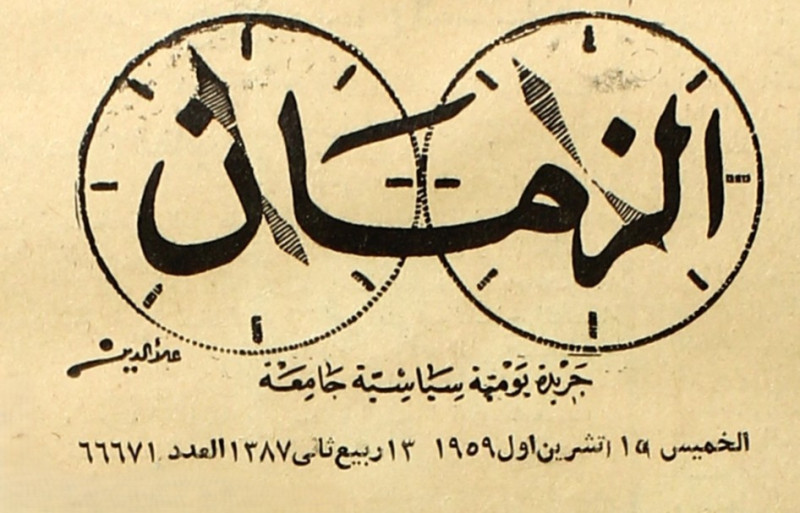 الزمان
علاء الدين
جَريدة يَوْميّة سِيَاسِيّة جَامِعَة
الخميس ١٥ اتشرين اول ١٩٥٩ ١٣ ربيع ثانى ١٣٨٧ العدد ٦٦٦٧١